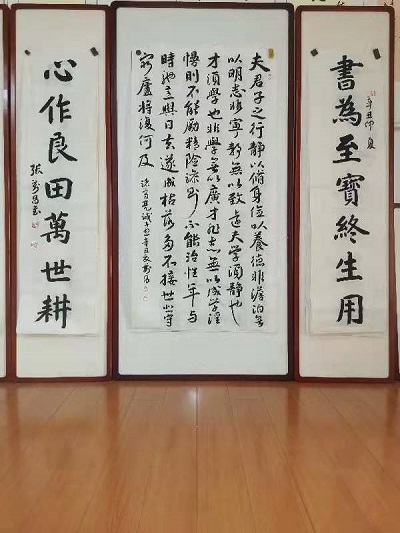 書為至寶終生用
辛丑仲夏
夫君子之行靜以脩身儉以養德非澹泊無
以明志非寧靜無以致遠夫學須靜也
才須學也非學無以廣才非志無以成學淫
慢則不能勵精險躁則不能治性年與
時馳意與日去遂成枯落多不接世悲守
窮廬將復何及
諸葛亮誡子書辛丑夏
心作良田萬世耕
張